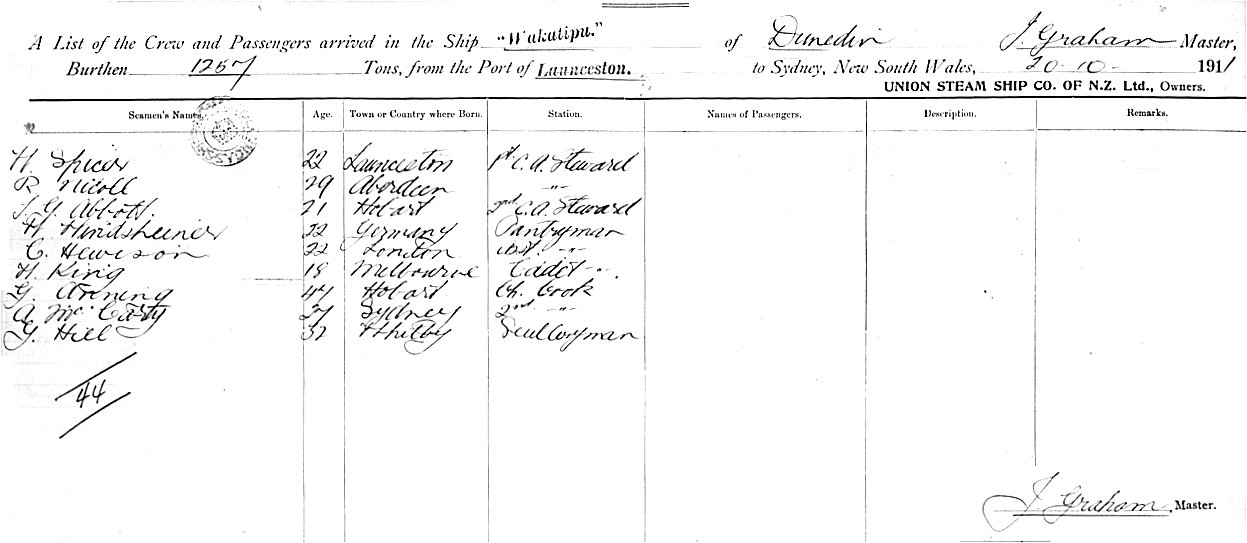 A List of the Crew and Passengers arrived in the Ship "Wakatipu." of Dunedin J. Graham Master,
Burthen 1257 Tons, from the Port of Launceston. to Sydney, New South Wales, 20-10- 1911
UNION STEAM SHIP CO. OF N.Z. Ltd., Owners.
Seamen's Names. Age. Town or Country where Born. Station. Names of Passengers. Description. Remarks.
H. Spicer 22 Launceston 1st C.A. Steward
R. Nicoll 29 Aberdeen -"-
J. G. Abbott. 21 Hobart 2nd C.A. Steward
H. 22 Germany Pantryman
C. Hewison 22 London Asst. -"-
H. King 18 Melbourne Cadet -"-.
G. Anning 47 Hobart Ch. Cook
A. McCarty 27 Sydney 2nd -"-
G. Hill 32 Whitby Sculleryman
44
J. Graham, Master.